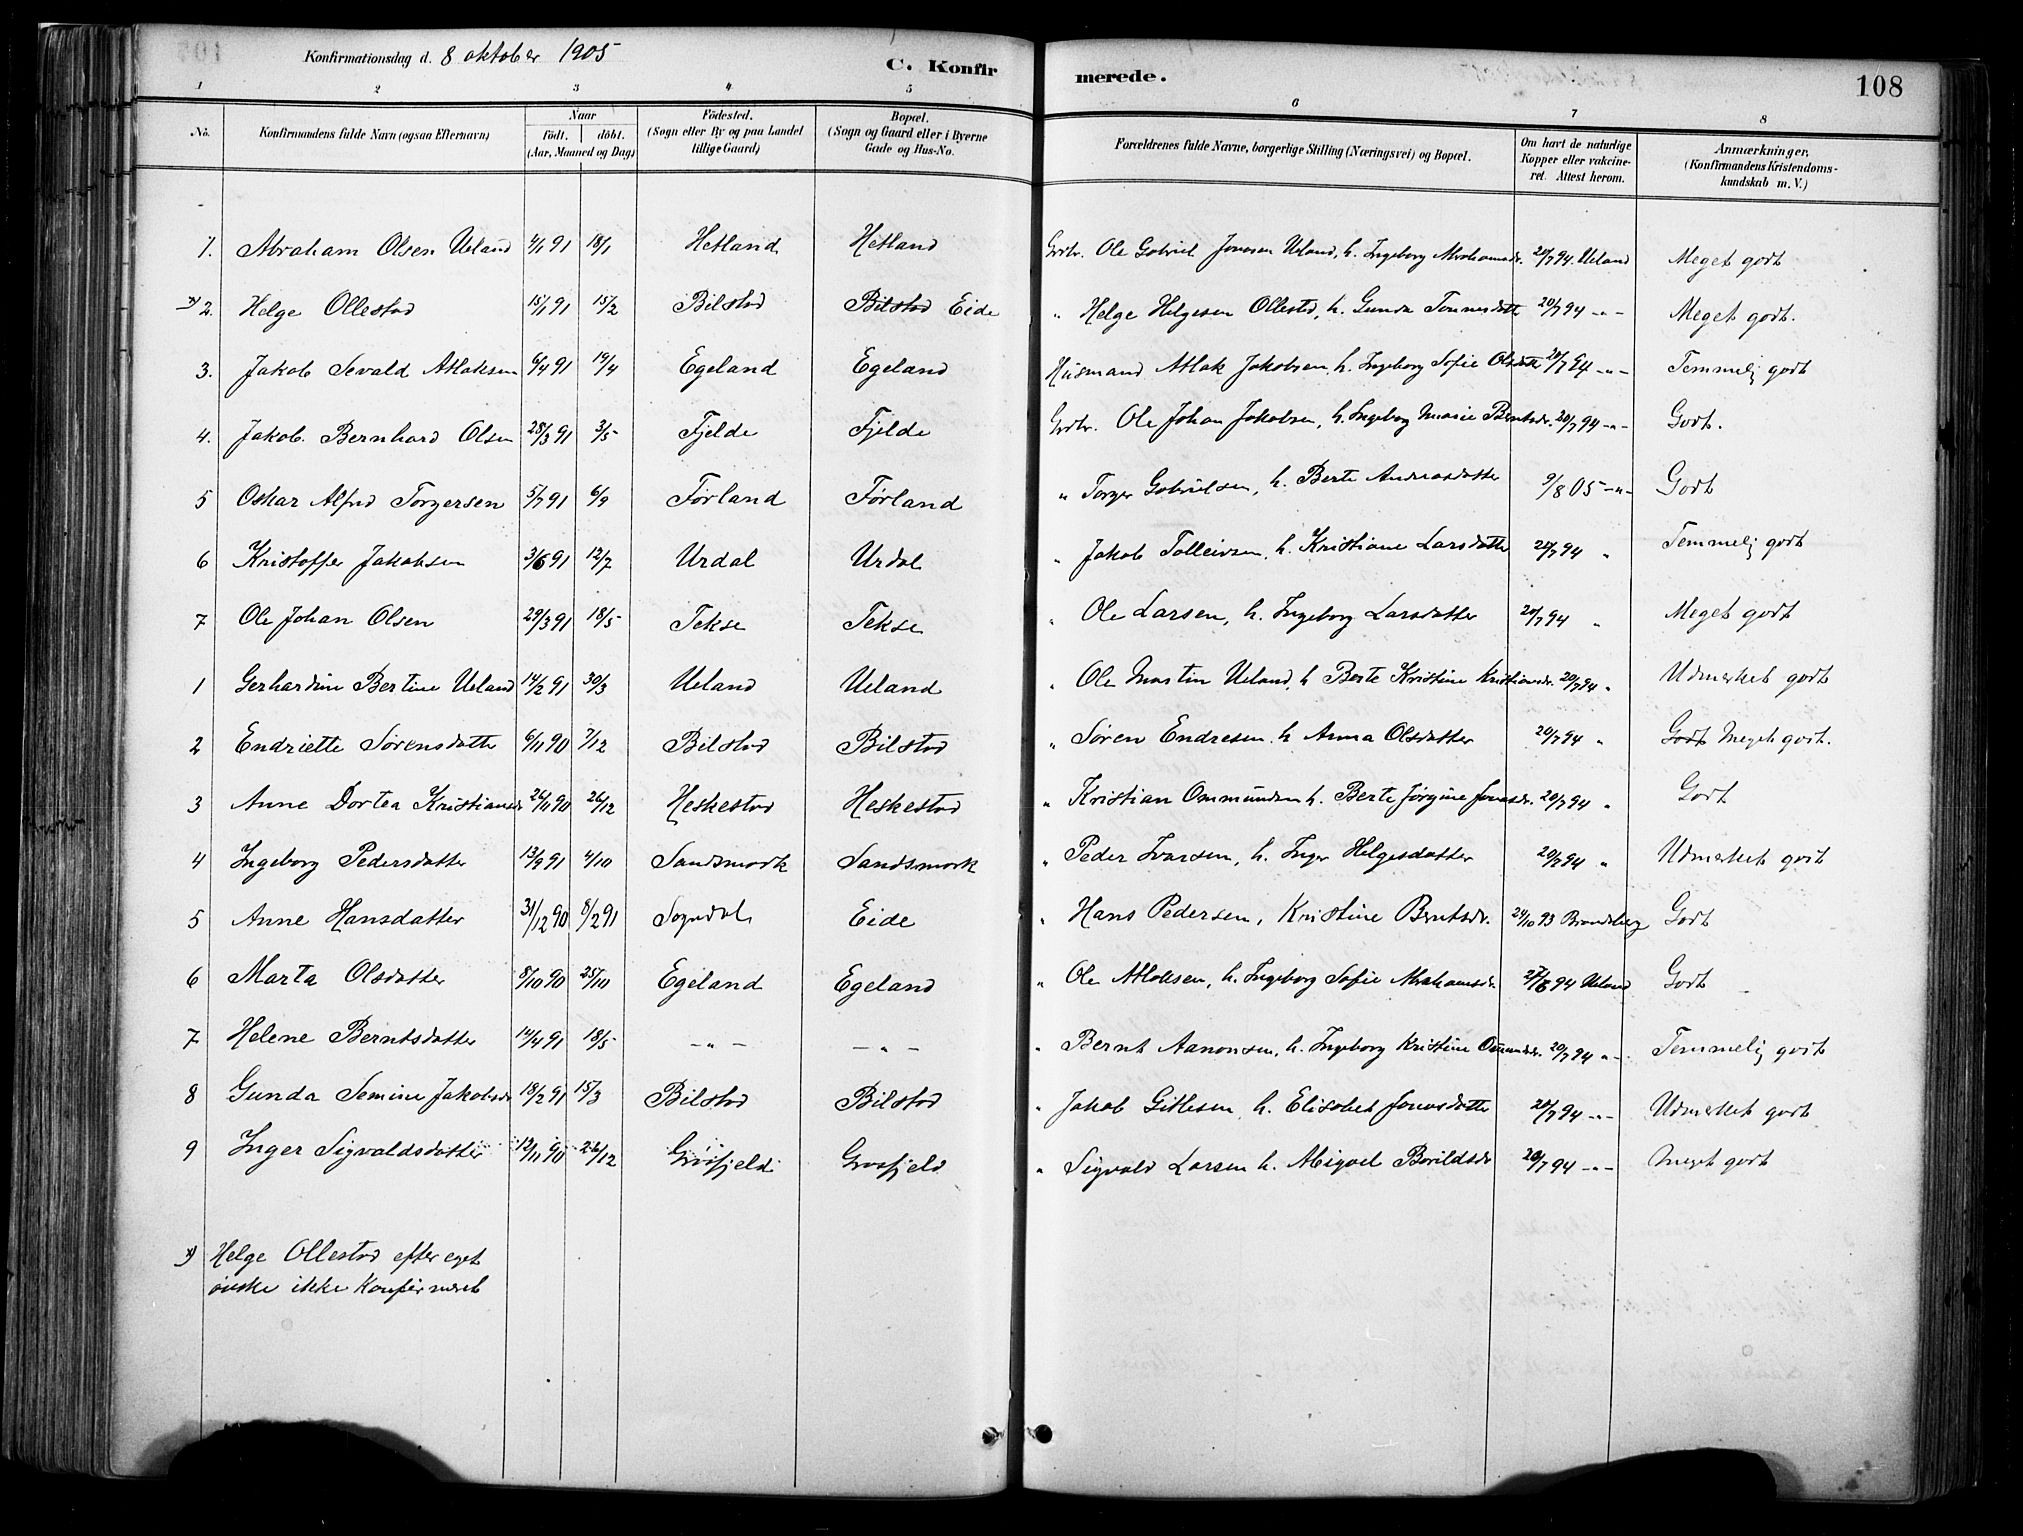 Konfirmationsdag d. 8 oktober 1905 C. Konfirmerede. 108
1 2 3 4 5 6 7 8
No. Konfirmandens fulde Navn (ogsaa Efternavn) Naar födt. döbt. (Aar, Maaned og Dag) Födested. (Sogn eller By og paa Landet tillige Gaard) Bopæl. (Sogn og Gaard eller i Byerne Gade og Hus-No. Forældrenes fulde Navne, borgerlige Stilling (Næringsvei) og Bopæl. Om havt de naturlige Kopper eller vakcineret. Attest herom. Anmærkninger. (Konfirmandens Kristendomskundskab m. V.)
1. Abraham Olsen Ueland 4/1 91 18/1 Hetland Hetland Grdbr. Ole Gabriel Jonassen Ueland, h. Ingeborg Abrahamsdr. 20/7 94 Ueland Meget godt
x) 2. Helge Ollestad 15/1 91 15/2 Bilstad Bilstad Eide " Helge Helgesen Ollestad, h. Gunda Tønnesdatt 20/7 94 -"- Meget godt.
3. Jakob Sevald Atlaksen 6/4 91 19/4 Egeland Egeland Husmand Atlak Jakobsen, h. Ingeborg Sofie Olsdatt 20/7 94 -"- Temmelig godt
4. Jakob Bernhard Olsen 28/3 91 3/5 Fjelde Fjelde Grdbr. Ole Johan Jakobsen, h. Ingeborg Marie Berntsdr. 20/7 94 -"- Godt.
5 Oskar Alfred Torgersen 5/7 91 6/9 Førland Førland " Torger Gabrielsen, h. Berte Andreasdatter 9/8 05 -"- Godt
6 Kristoffer Jakobsen 3/6 91 12/7 Urdal Urdal " Jakob Tolleivsen, h. Kristiane Larsdatter 20/7 94 " Temmelig godt
7 Ole Johan Olsen 29/3 91 18/5 Tekse Tekse " Ole Larsen, h. Ingeborg Larsdatter 20/7 94 " Meget godt
1 Gerhardine Bertine Ueland 14/2 91 30/3 Ueland Ueland " Ole Martin Ueland, h Berte Kristine Kristiansdr. 20/7 94 " Udmerket godt
2 Endriette Sørensdatter 6/11 90 7/12 Bilstad Bilstad " Søren Endresen h. Anna Olsdatter 20/7 94 " Godt Meget godt.
3 Anne Dortea Kristiansdr 26/11 90 26/12 Heskestad Heskestad " Kristian Ommundsen h. Berte Jørgine Jonasdr. 20/7 94 " Godt
4 Ingeborg Pedersdatter 13/9 91 4/10 Sandsmork Sandsmork " Peder Ivarsen, h. Inger Helgesdatter 20/7 94 " Udmerket godt
5 Anne Hansdatter 31/12 90 8/2 91 Sogndal Eide " Hans Pedersen, Kristine Berntsdr. 24/10 93 Godt
6 Marta Olsdatter 8/10 90 25/10 Egeland Egeland " Ole Atlaksen, h. Ingeborg Sofie Abrahamsdr. 94 Ueland Godt
7 Helene Berntsdatter 14/4 91 18/5 -"- -"- " Bernt Aanonsen, h. Ingeborg Kristine 20/7 94 "- Temmelig godt
8 Gunda Semine Jakobsdr 18/2 91 15/3 Bilstad Bilstad " Jakob Gitlesen h. Elisabet Jonasdatter 20/7 94 -"- Udmerket godt
9 Inger Sigvaldsdatter 12/11 90 26/12 Grøsfjeld Grøsfjeld " Sigvald Larsen h. Abigael Bårildsdr 20/7 94 -"- Meget godt
x) Helge Ollestad efter eget
ønske ikke konfirmeret